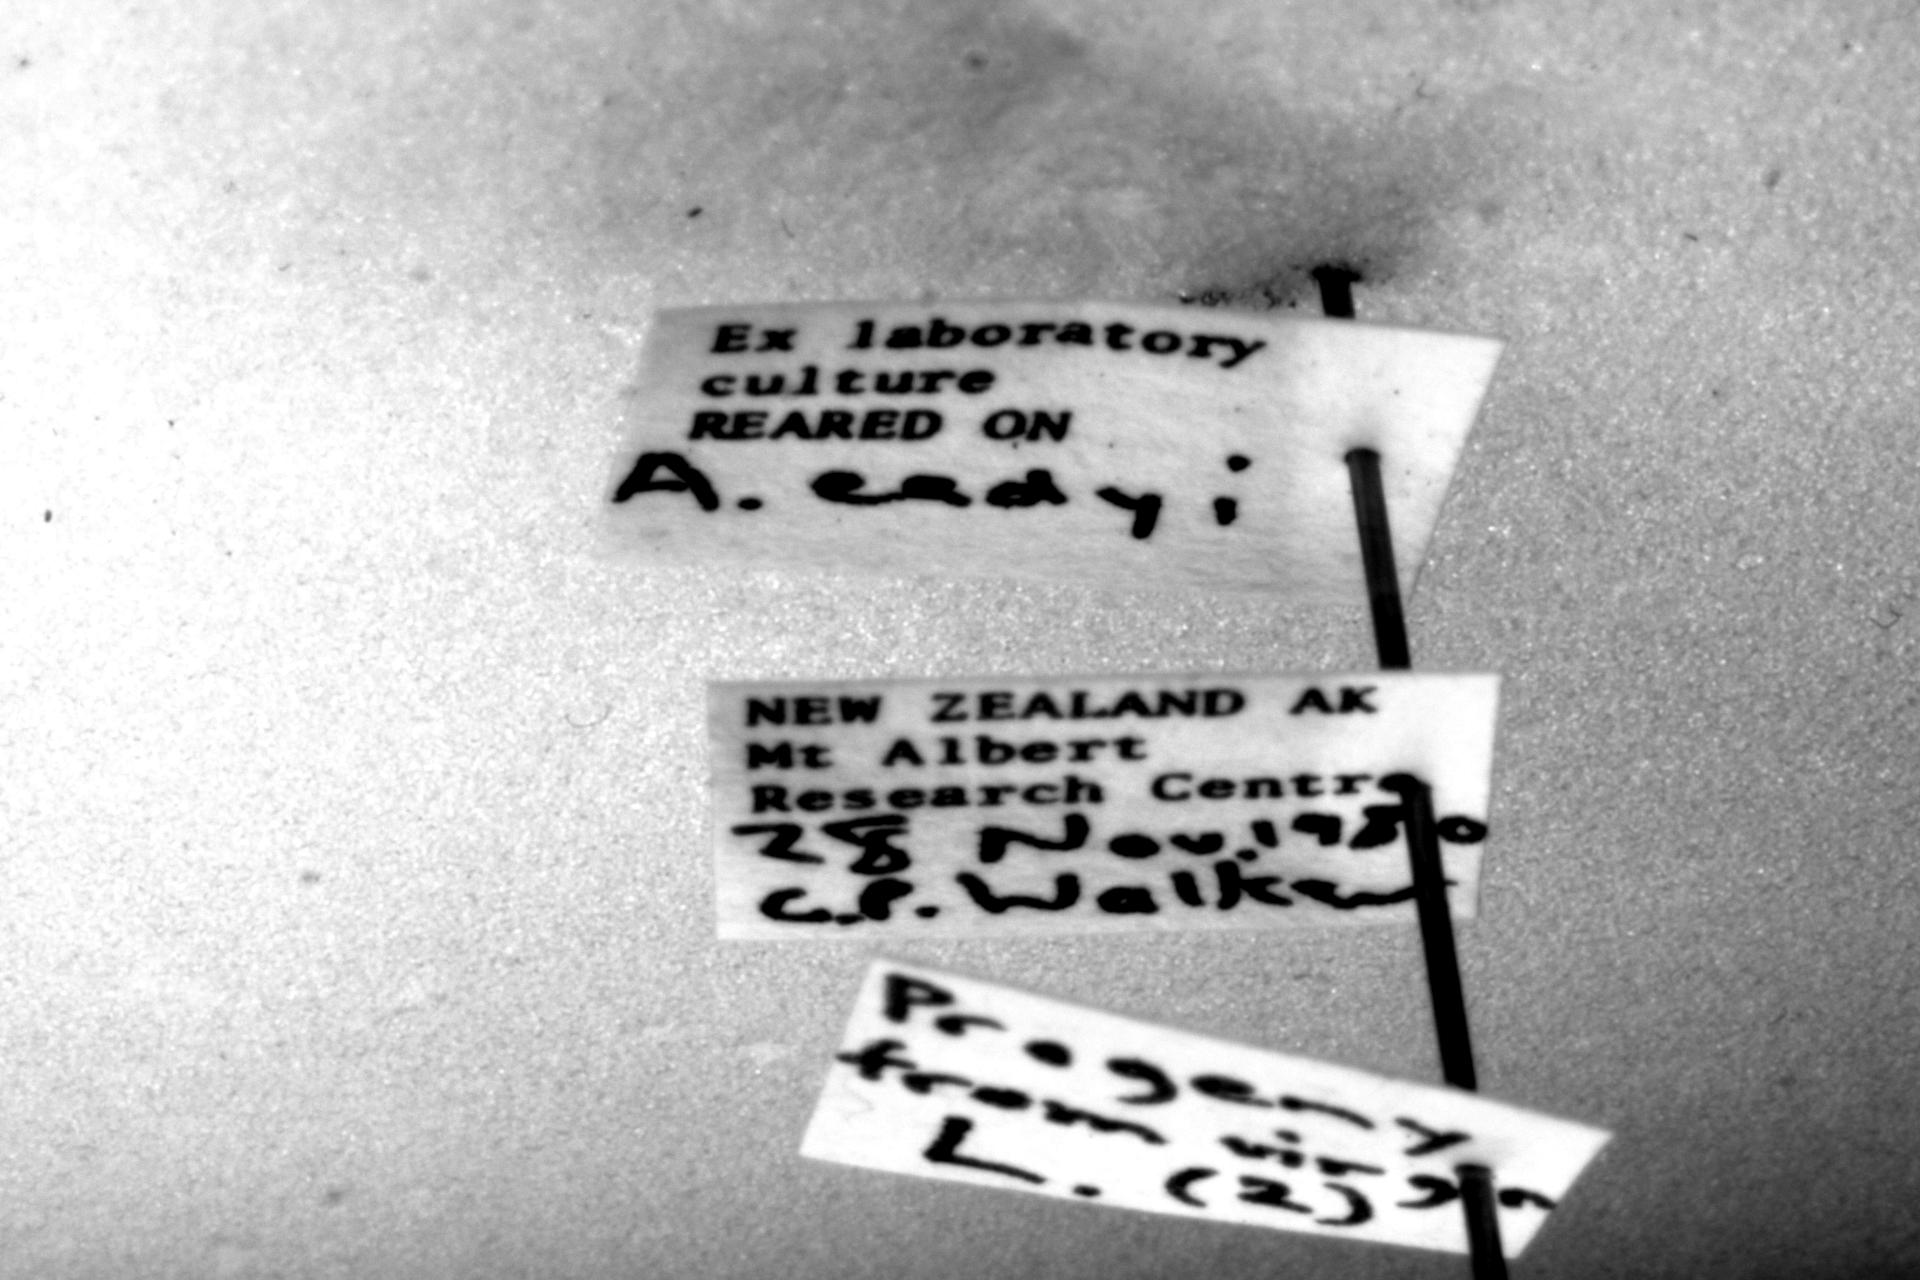 Ex laboratory
culture
REARED ON
A. eadyi
NEW ZEALAND AK
Mt Albert
Research Centre
28 Nov. 1980
C.P. Walker
Progeny
from virgin
L. (2)